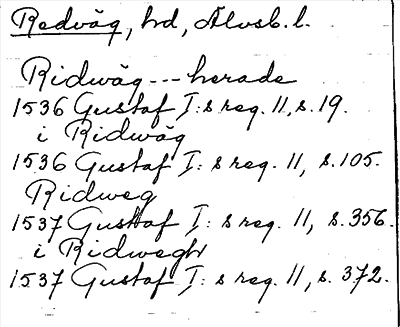 Redväg, hd, Älvsb. l.
Ridwäg --- herade
1536 Gustaf I:s reg. 11, s. 19.
i Ridwäg
1536 Gustaf I:s reg. 11, s. 105.
Ridweg
1537 Gustaf I:s reg. 11, s. 356.
i Ridwegh
1537 Gustaf I:s reg. 11, s. 372.